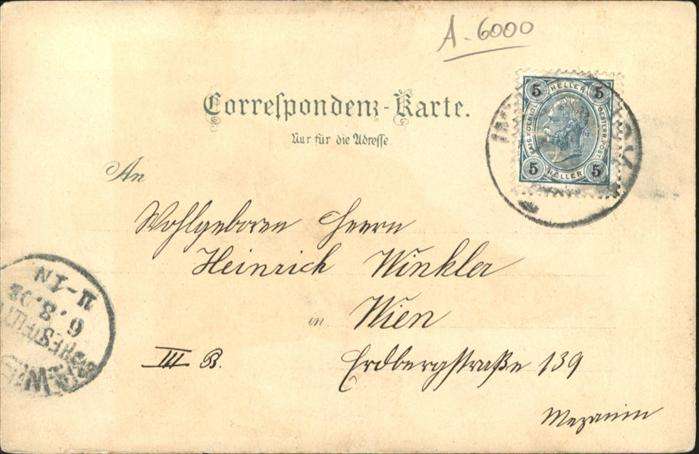 A. 6000
5 HELLER 5
5 HELLER 5
Correspondenz-Karte.
Nur für die Adresse
An
Wohlgeboren Herrn
Heinrich Winkler
in Wien
III B. Erdbergstraße 139
Mezanin
6. 3. 02
II - 1N
BESTELLT
WIEN